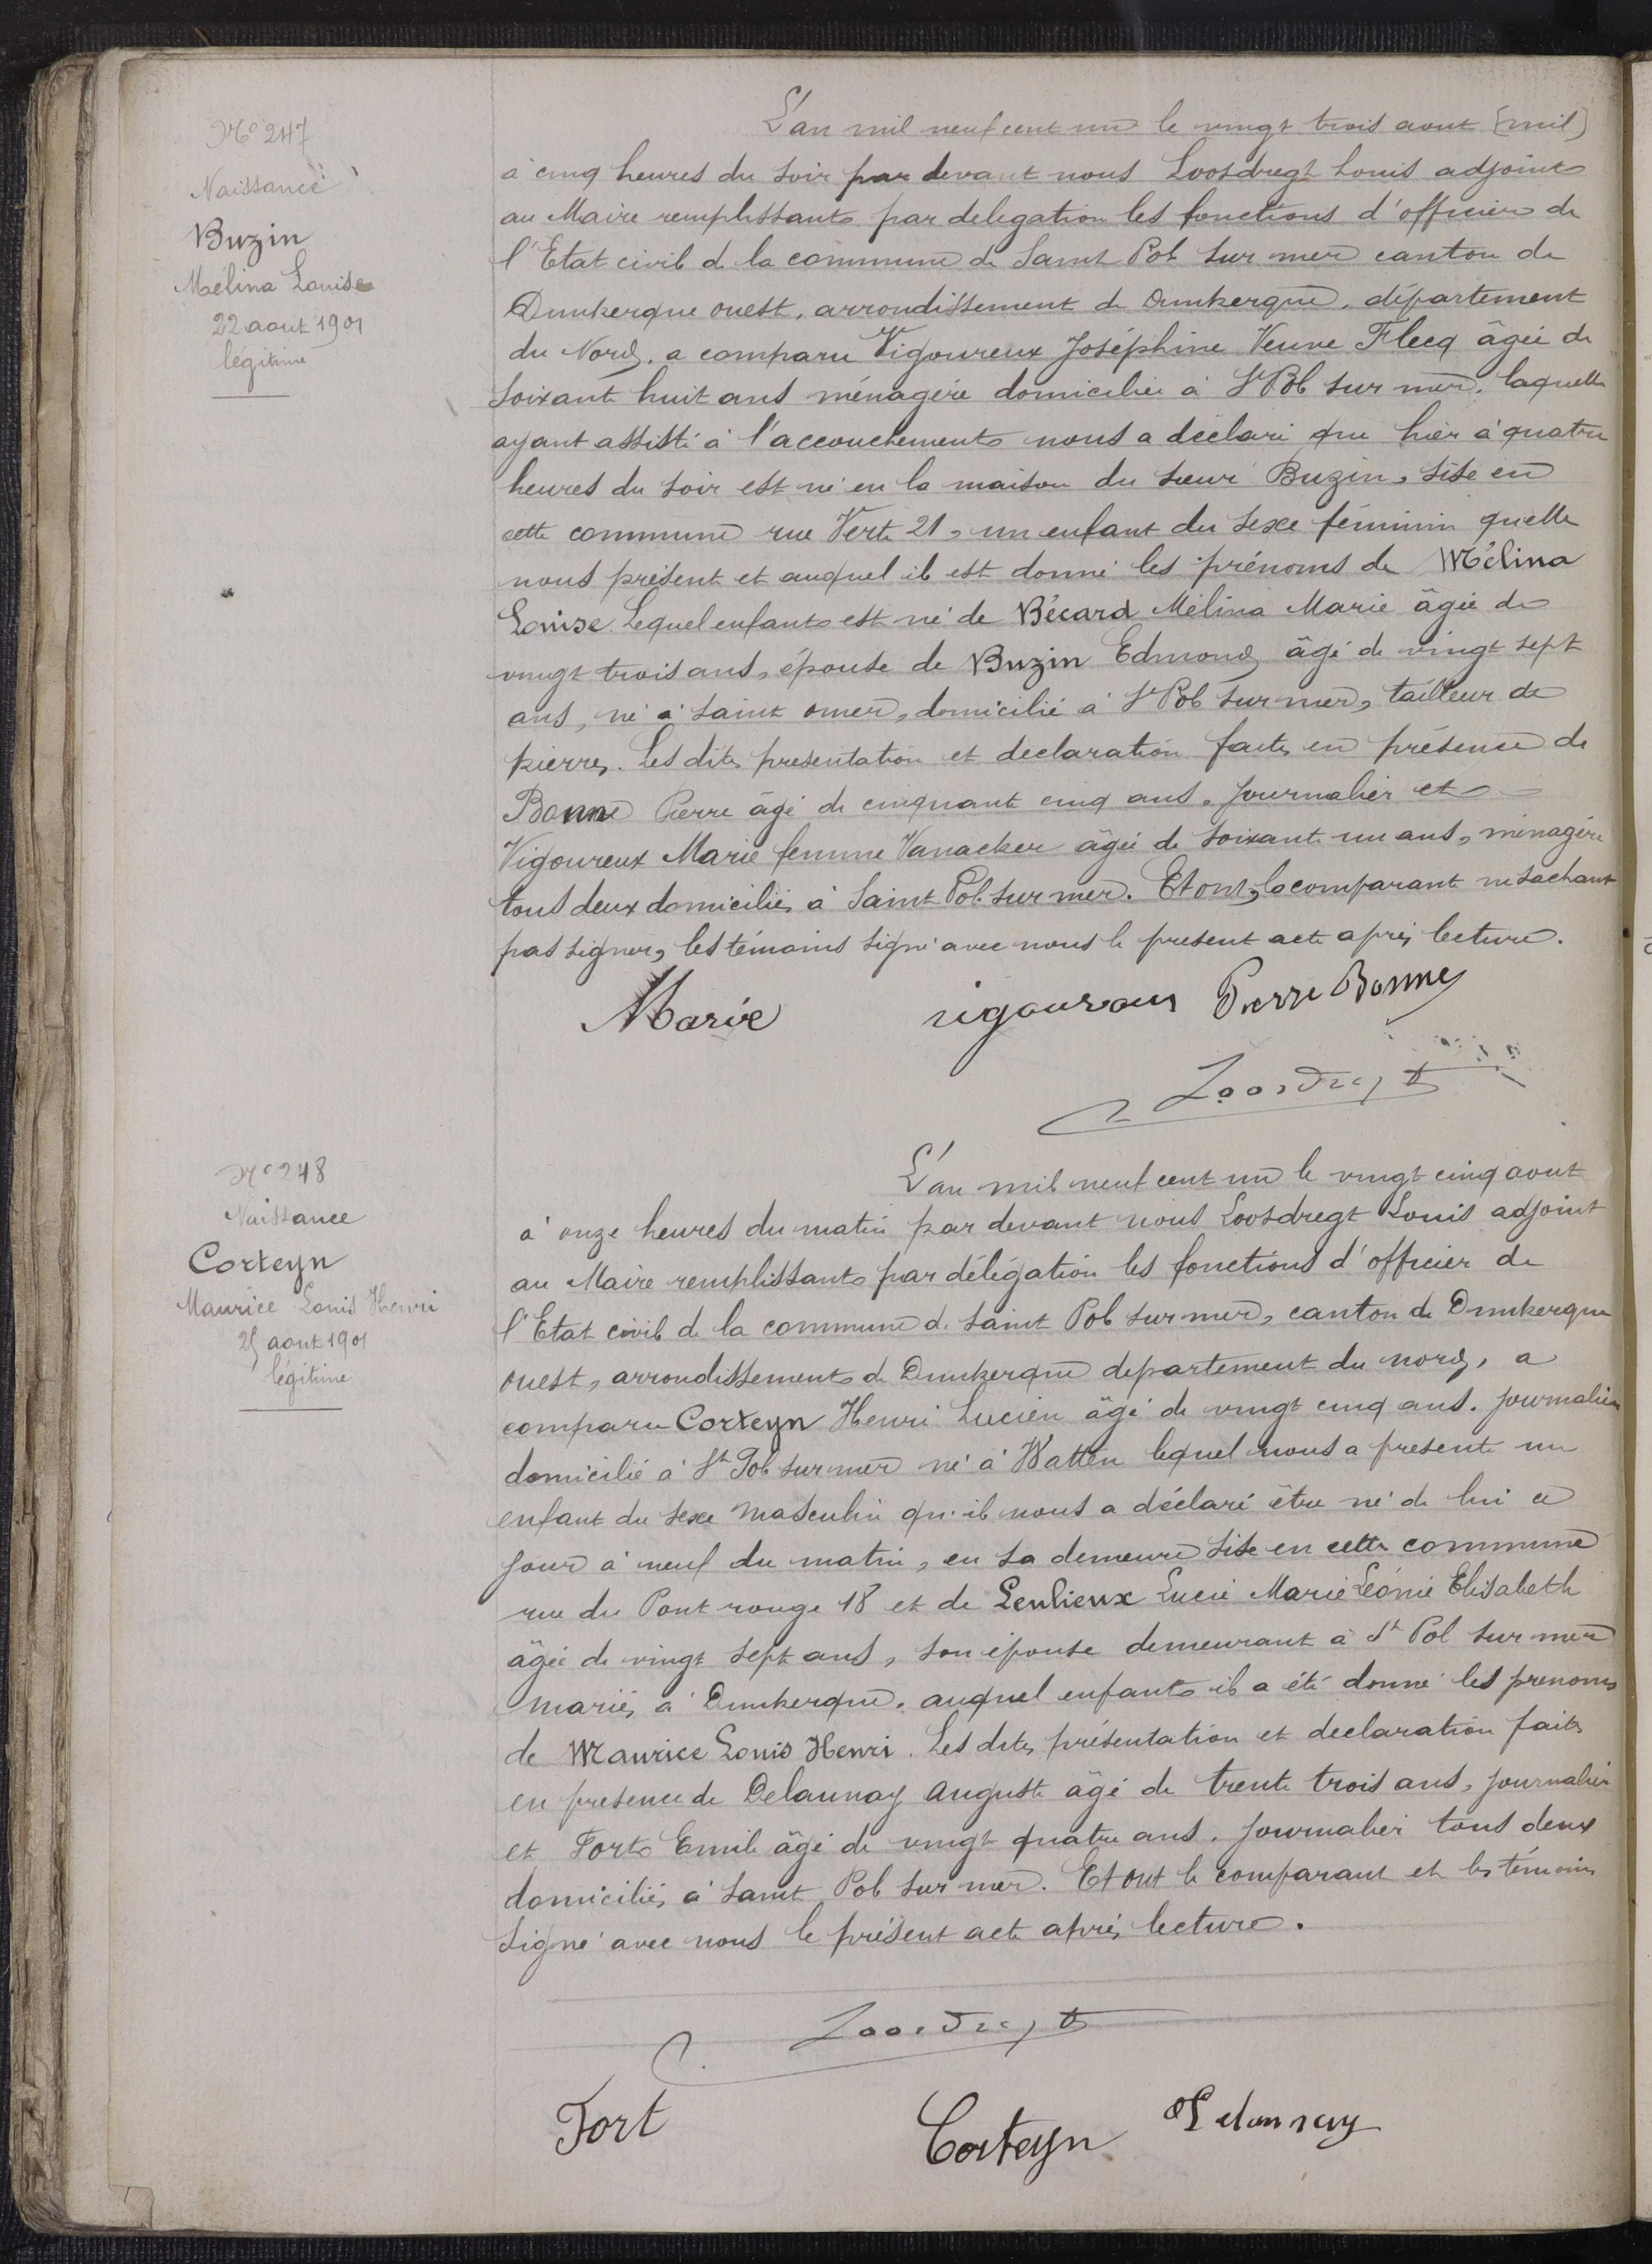 N° 247
Naissance
Buzin
Mélina Louise
22 aout 1901
légitime
L'an mil neuf cent un le vingt trois aout [mil]
à cinq heures du soir par devant nous Loosdregt Louis adjoint
au Maire remplissant par delegation les fonctions d'officier de
l'Etat civil de la commune de Saint Pol sur mer canton de
Dunkerque ouest, arrondissement de Dunkerque, département
du Nord, a comparu Vigoureux Joséphine Veuve Flecq âgée de
soixante huit ans ménagère domiciliée à St Pol sur mer, laquelle
ayant assisté à l'accouchement nous a déclaré que hier à quatre
heures du soir est né en la maison du sieur Buzin, sise en
cette commune rue Verte 21, un enfant du sexe féminin quelle
nous présente et auquel il est donné les prénoms de Mélina
Louise. Lequel enfant est né de Bécard Mélina Marie âgée de
vingt trois ans, épouse de Buzin Edmond âgé de vingt sept
ans, né à Saint Omer, domicilié à St Pol sur mer, tailleur de
pierres. Les dites presentation et declaration faites en présence de
Bonne Pierre âgé de cinquante cinq ans, journalier et
Vigoureux Marie femme Vanacker âgée de soixante un ans, ménagère
tous deux domiciliés à Saint Pol sur mer. Et ont, la comparante ne sachant
pas signer, les témoins signé avec nous le present acte après lecture.
Marie vigoureux Pierre Bonne
Loosdregt
N° 248
Naissance
Corteyn
Maurice Louis Henri
25 aout 1901
légitime
L'an mil neuf cent un le vingt cinq aout
à onze heures du matin par devant nous Loosdregt Louis adjoint
au Maire remplissant par délégation les fonctions d'officier de
l'Etat civil de la commune de Saint Pol sur mer, canton de Dunkerque
ouest, arrondissement de Dunkerque departement du nord, a
comparu Corteyn Henri Lucien âgé de vingt cinq ans, journalier
domicilié à St Pol sur mer né à Watten lequel nous a presenté un
enfant du sexe masculin qu'il nous a déclaré être né de lui ce
jour à neuf du matin, en sa demeure sise en cette commune
rue du Pont rouge 18 et de Leulieux Lucie Marie Léonie Elisabeth
âgée de vingt sept ans, son épouse demeurant à St Pol sur mer
mariés à Dunkerque, auquel enfant il a été donné les prenoms
de Maurice Louis Henri. Les dites présentation et declaration faites
en presence de Delaunay Auguste âgé de trente trois ans, journalier
et Fort Emile âgé de vingt quatre ans, journalier tous deux
domiciliés à Saint Pol sur mer. Et ont le comparant et les témoins
signé avec nous le présent acte après lecture.
Loosdregt
Fort Corteyn Delaunay